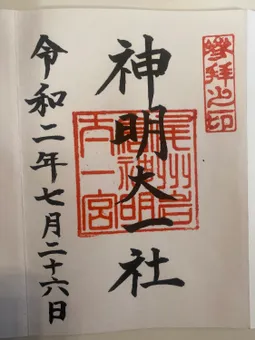 參拜之印
神明大一社
尾州岩
神明
大一宮
令和二年七月二十六日